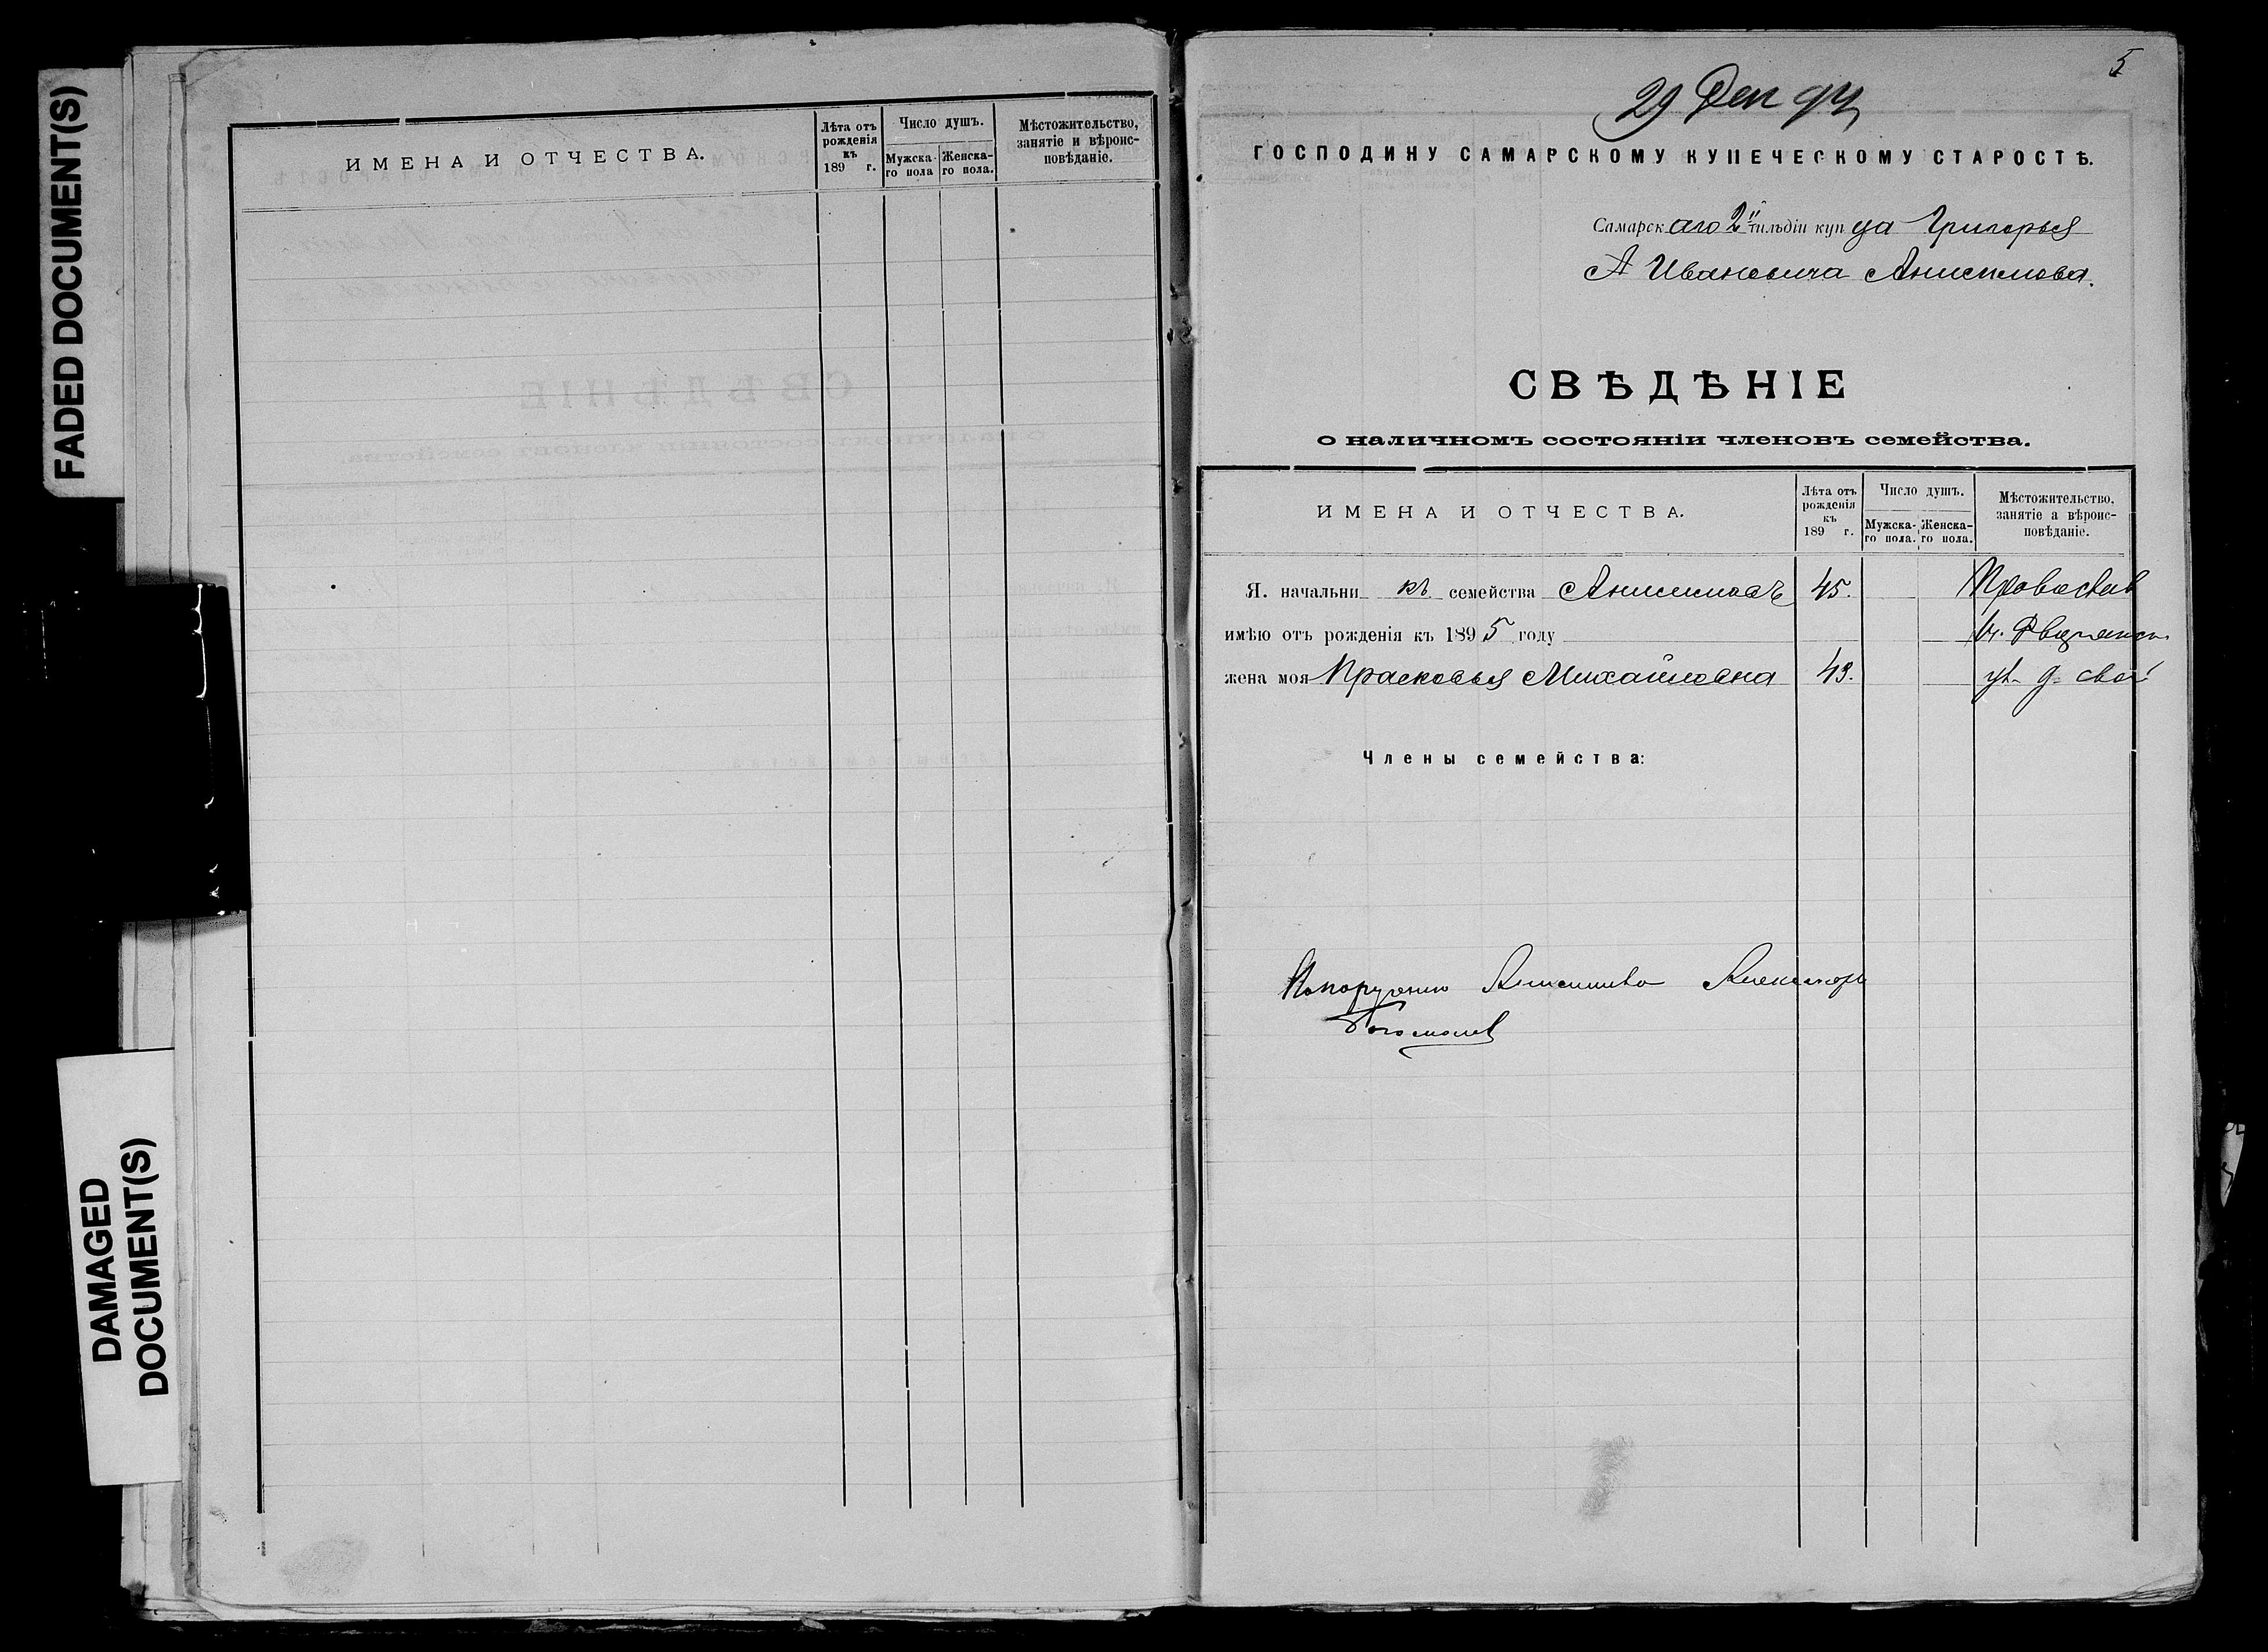 FADED DOCUMENT(S)
DAMAGED
DOCUMENT(S)
ИМЕНА И ОТЧЕСТВА.
Лѣта отъ рожденія къ 189 г.
Число душъ.
Мужска-го пола
Женска-го пола.
Мѣстожительство, занятіе и вѣроис-повѣданіе.
5
29 Дек 94
ГОСПОДИНУ САМАРСКОМУ КУПЕЧЕСКОМУ СТАРОСТѢ.
Самарскаго 2й гильдіи купца Григорья
Ивановича Анисимова.
СВѢДѢНІЕ
о наличномъ состояніи членовъ семейства.
ИМЕНА И ОТЧЕСТВА.
Лѣта отъ рожденія къ 189 г.
Число душъ.
Мужска-го пола.
Женска-го пола.
Мѣстожительство. занятіе а вѣроис-повѣданіе.
Я. начальникъ семейства Анисимовъ 45. Православ
имѣю отъ рожденія къ 1895 году
жена моя Прасковья Михайловна 43. ул. д. свой
Члены семейства:
По порученію Анисимова Александръ
Богомолов